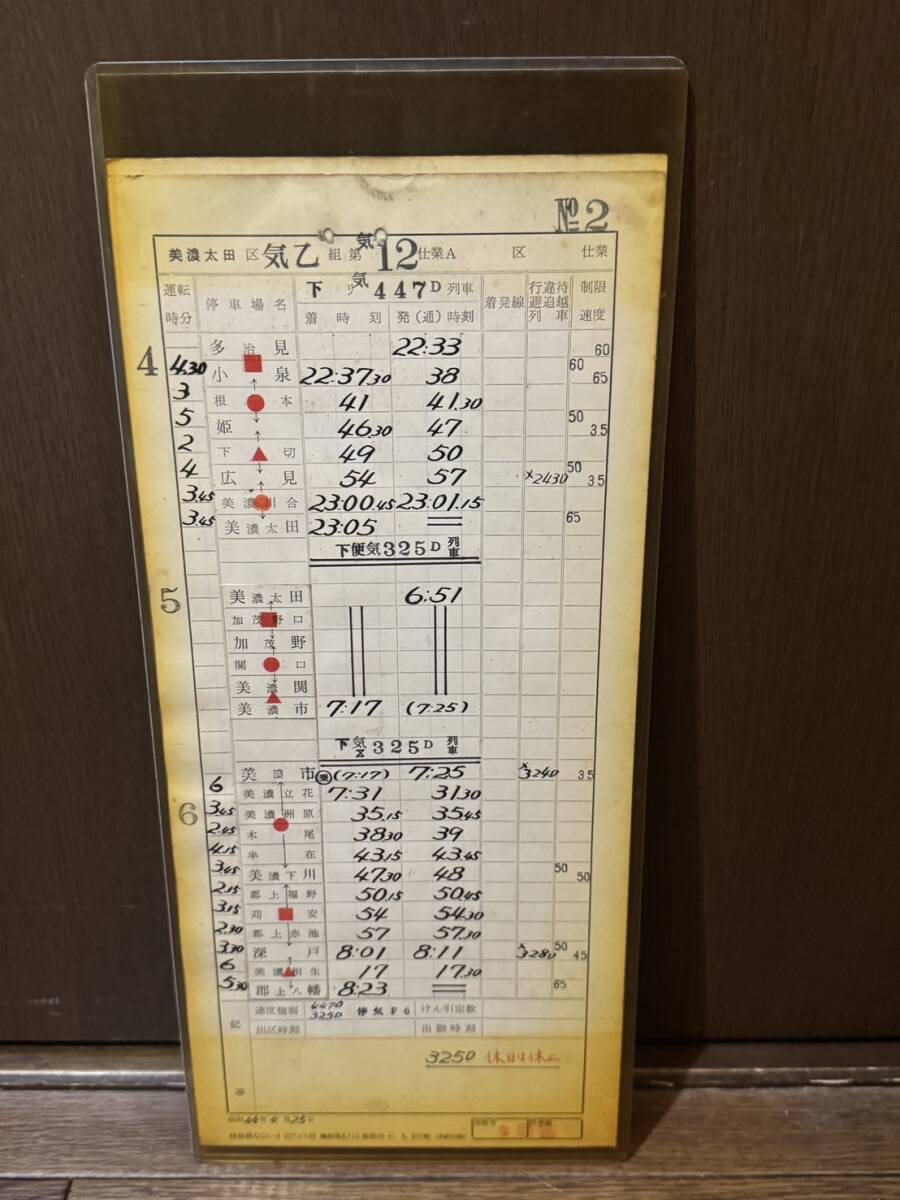 №2
美濃太田区 気乙 組第 気12 仕業A 区 仕業
運転時分 停車場名 下り気 447D 列車 着発線 行違待避追越列車 制限速度
着時刻 発(通)時刻
4 多治見 22:33 60
4.30 小泉 22:37.30 38 60 65
3 根本 41 41.30
5 姫 46.30 47 50 35
2 下切 49 50
4 広見 54 57 ×243D 50 35
3.45 美濃川合 23:00.45 23:01.15
3.45 美濃太田 23:05 ═ 65
下便気325D列車
5 美濃太田 6:51
加茂野口
加茂野
関口
美濃関
美濃市 7:17 (7:25)
下気 325D列車
美濃市 (7:17) 7:25 ×324D 35
6 美濃立花 7:31 31.30
6 3.45 美濃洲原 35.15 35.45
2.45 木尾 38.30 39
4.15 半在 43.15 43.45
3.45 美濃下川 47.30 48 50 50
2.15 郡上福野 50.15 50.45
3.15 苅安 54 54.30
2.30 郡上赤池 57 57.30
3.30 深戸 8:01 8:11 ×328D 50 45
6 美濃相生 17 17.30
5.30 郡上八幡 8:23 ═ 65
記 速度種別 447D 325D 停気F6 けん引定数
出区時刻 出勤時刻
325D 休日は休止
44年 25日